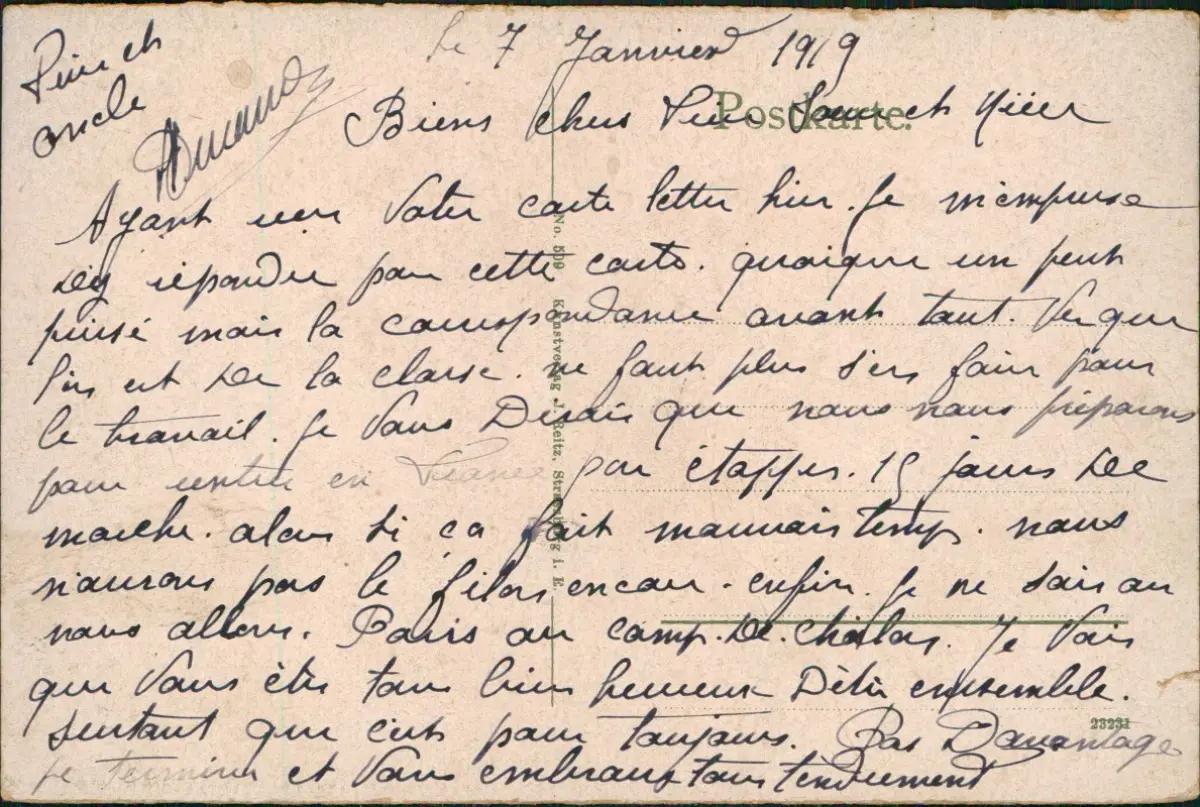 Le 7 Janvier 1919
Postkarte.
Biens chers
et
oncle
Ayant reru Votre carte lettre hier. Je m'empresse
d'ey répondre par cette carte. quoique un peut
pressé mais la correspondance avant tout. Vu que
l'on est De la classe. ne faut plus s'en fair pour
le travail. Je Vous Dirais que nous nous préparons
pour rentrer en France par étappes. 15 jours De
marche. alors si ca fait mauvais temp. nous
n'aurons pas le filon encour. enfin. Je ne sais ou
nous allons. Paris ou camp. De. Chalons. Je Vois
que Vous ètes tous bien heureux D'ètre empsemble.
surtout que c'est pour toujours. Pas Davantage
Je termine et Vous embrasse tous tendrement
No. 509 Kunstverlag J. Reitz, Strassburg i. E.
23231